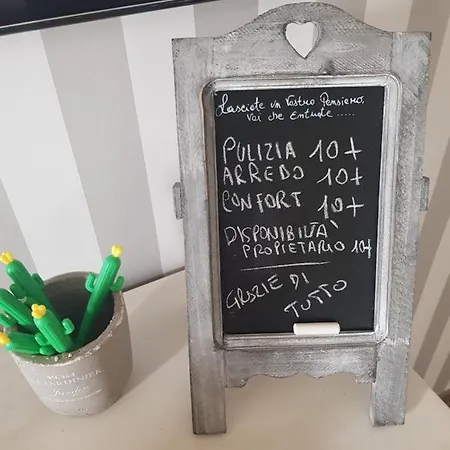 Lasciate un Vostro Pensiero,
Voi che Entrate .....
PULIZIA 10+
ARREDO 10+
CONFORT 10+
DISPONIBILITA'
PROPRIETARIO 10+
GRAZIE DI
TUTTO
JARDINIER